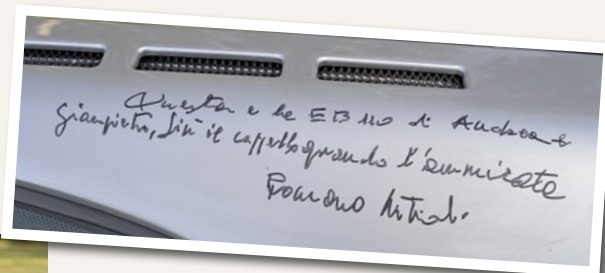 Questa e la EB 110 di Andrea e
Giampietro, giù il cappello quando l'ammirate
Romano Artioli